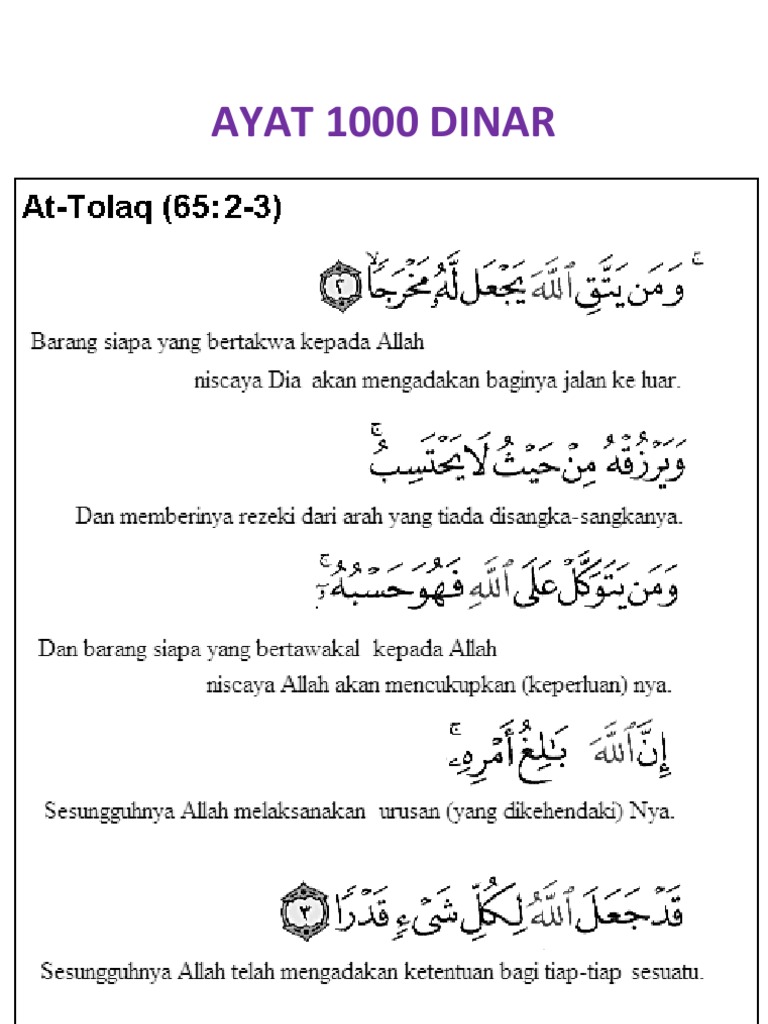 AYAT 1000 DINAR
At-Tolaq (65:2-3)
ۚ وَمَن يَتَّقِ ٱللَّهَ يَجْعَل لَّهُۥ مَخْرَجًا ۙ ٢
Barang siapa yang bertakwa kepada Allah
niscaya Dia akan mengadakan baginya jalan ke luar.
وَيَرْزُقْهُ مِنْ حَيْثُ لَا يَحْتَسِبُ ۚ
Dan memberinya rezeki dari arah yang tiada disangka-sangkanya.
وَمَن يَتَوَكَّلْ عَلَى ٱللَّهِ فَهُوَ حَسْبُهُۥٓ ۚ
Dan barang siapa yang bertawakal kepada Allah
niscaya Allah akan mencukupkan (keperluan) nya.
إِنَّ ٱللَّهَ بَـٰلِغُ أَمْرِهِۦ ۚ
Sesungguhnya Allah melaksanakan urusan (yang dikehendaki) Nya.
قَدْ جَعَلَ ٱللَّهُ لِكُلِّ شَىْءٍ قَدْرًا ٣
Sesungguhnya Allah telah mengadakan ketentuan bagi tiap-tiap sesuatu.